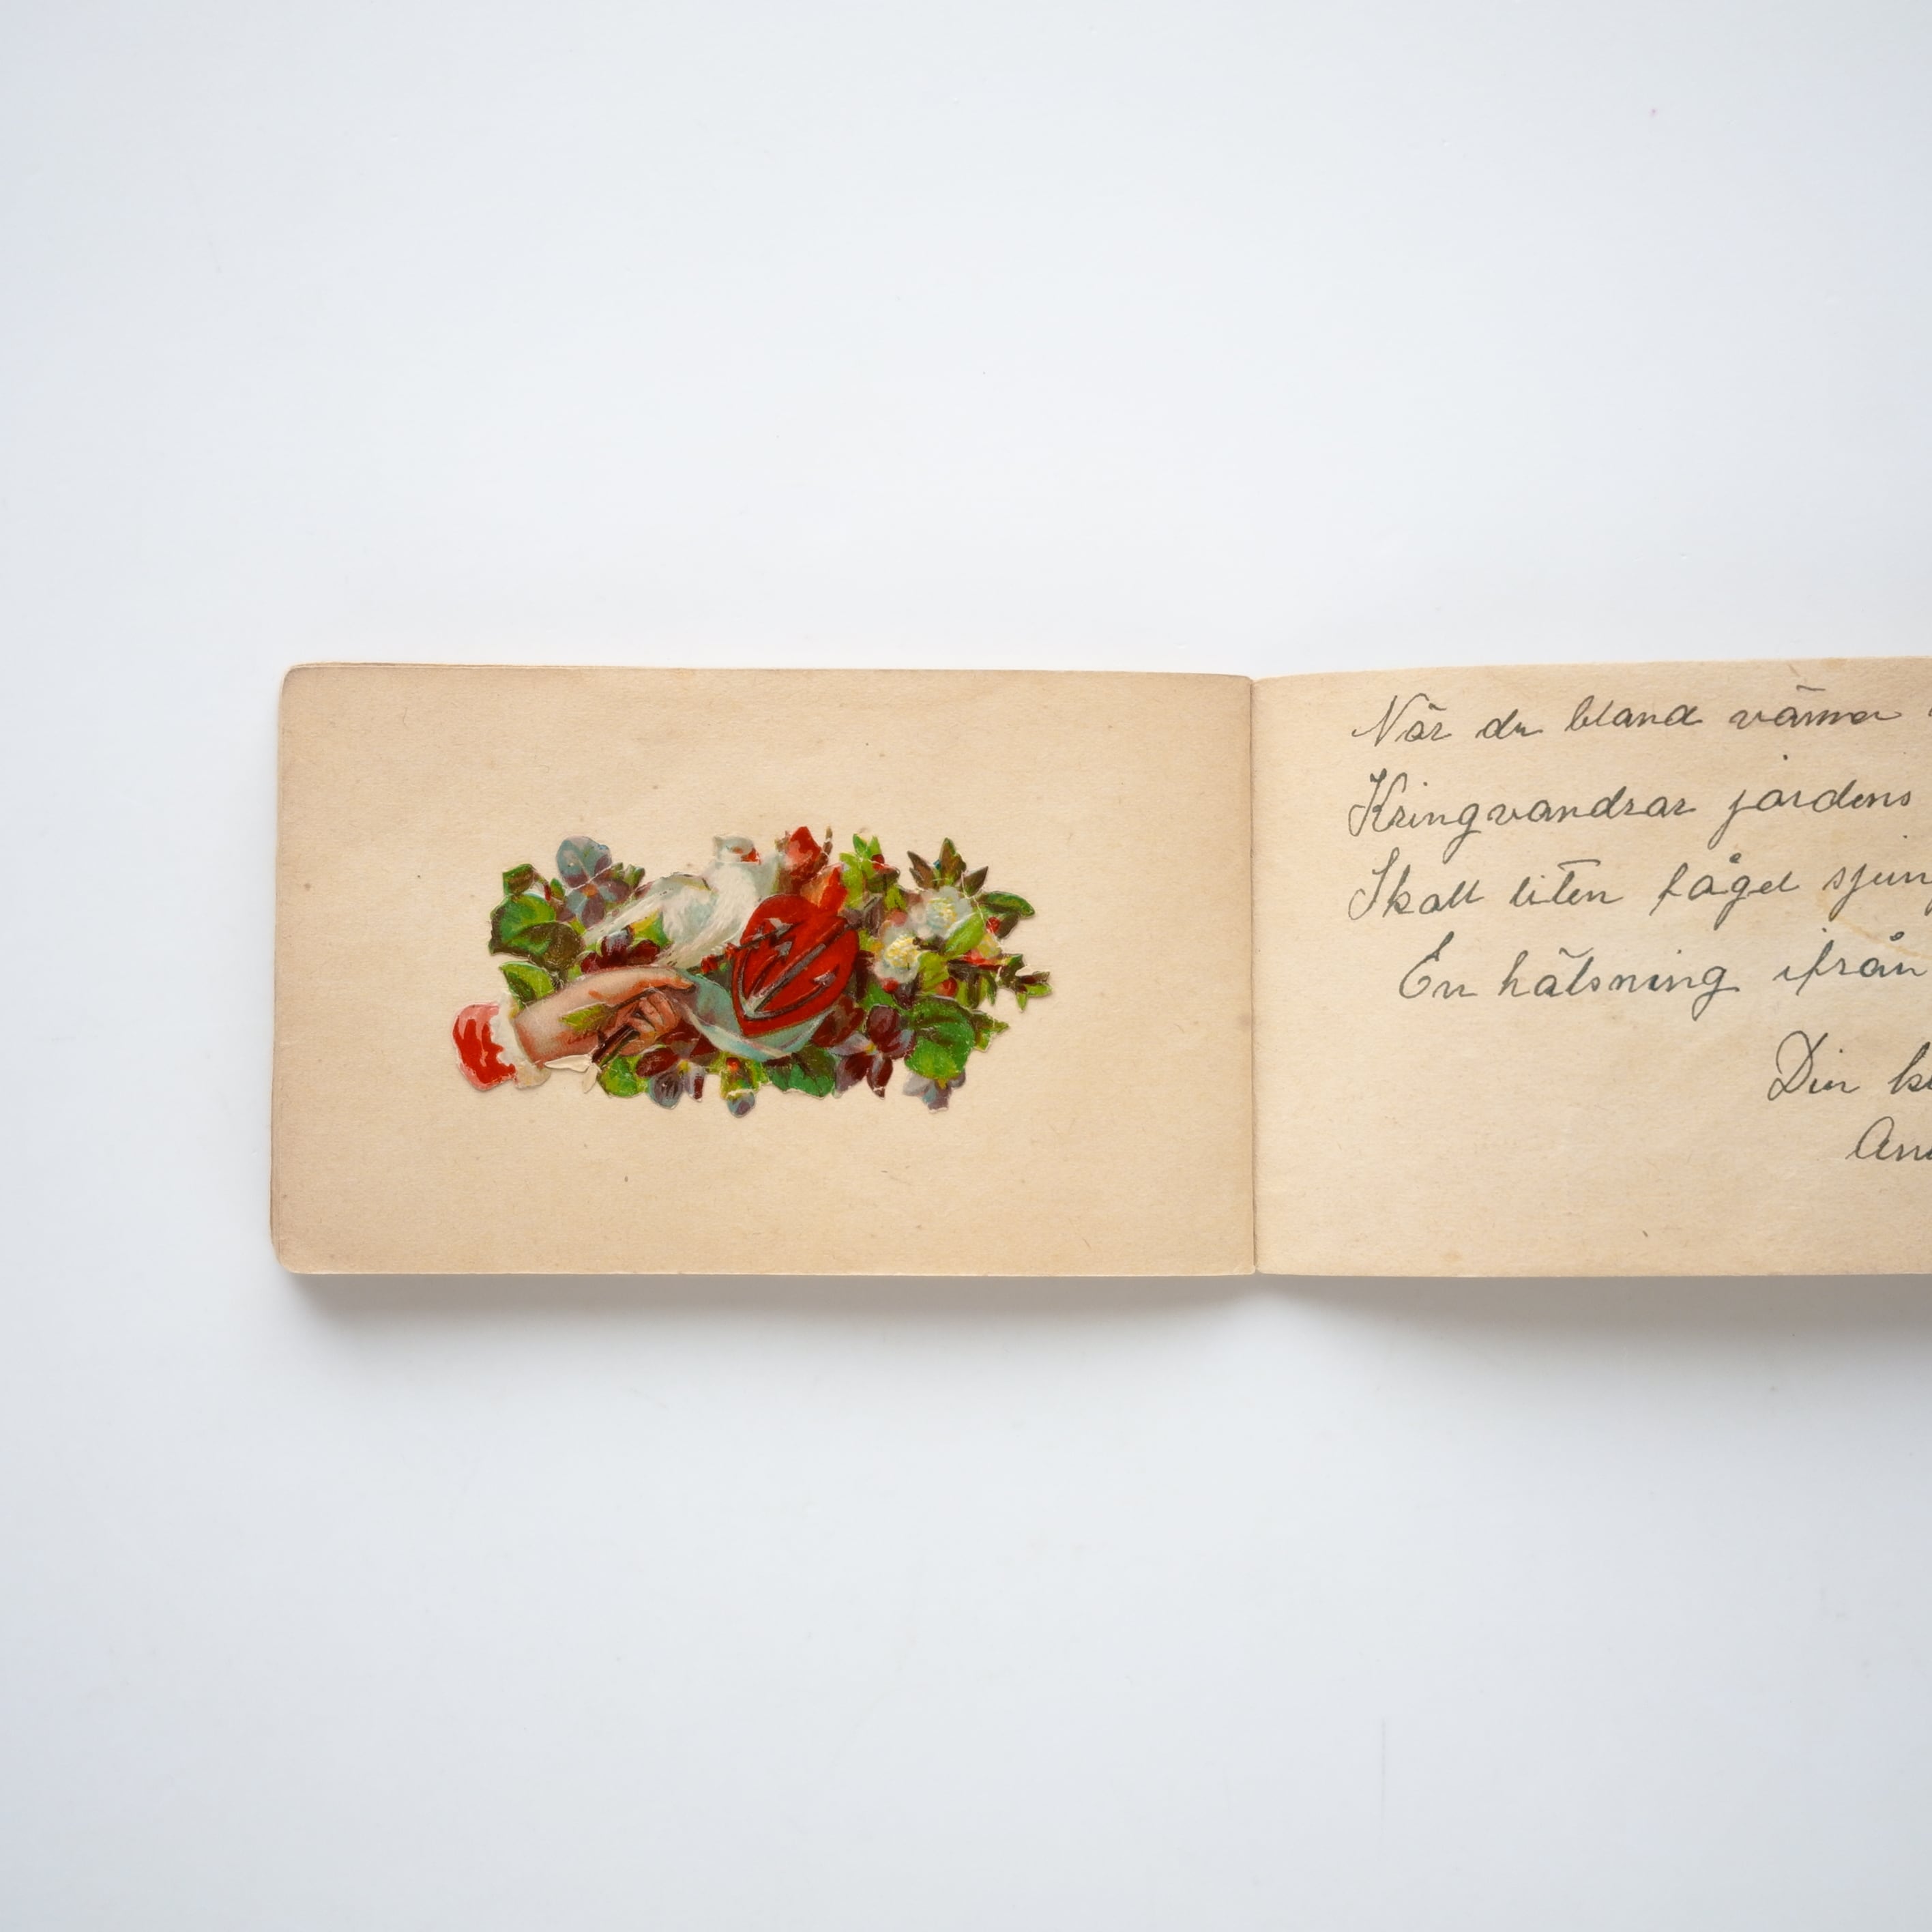 När du bland vänner
Kringvandrar jordens
Skall liten fågel
En hälsning ifrån
Din